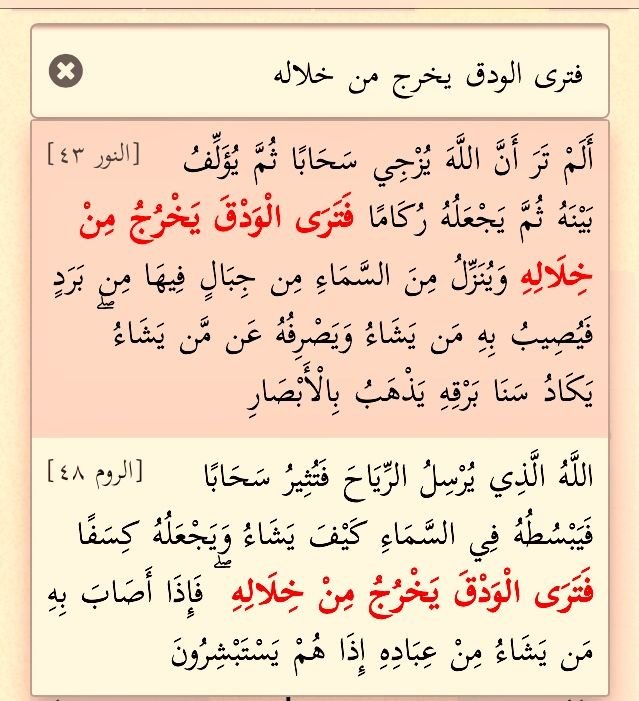 فترى الودق يخرج من خلاله
أَلَمْ تَرَ أَنَّ اللَّهَ يُزْجِي سَحَابًا ثُمَّ يُؤَلِّفُ [النور ٤٣]
بَيْنَهُ ثُمَّ يَجْعَلُهُ رُكَامًا فَتَرَى الْوَدْقَ يَخْرُجُ مِنْ
خِلَالِهِ وَيُنَزِّلُ مِنَ السَّمَاءِ مِن جِبَالٍ فِيهَا مِن بَرَدٍ
فَيُصِيبُ بِهِ مَن يَشَاءُ وَيَصْرِفُهُ عَن مَّن يَشَاءُ ۖ
يَكَادُ سَنَا بَرْقِهِ يَذْهَبُ بِالْأَبْصَارِ
اللَّهُ الَّذِي يُرْسِلُ الرِّيَاحَ فَتُثِيرُ سَحَابًا [الروم ٤٨]
فَيَبْسُطُهُ فِي السَّمَاءِ كَيْفَ يَشَاءُ وَيَجْعَلُهُ كِسَفًا
فَتَرَى الْوَدْقَ يَخْرُجُ مِنْ خِلَالِهِ ۖ فَإِذَا أَصَابَ بِهِ
مَن يَشَاءُ مِنْ عِبَادِهِ إِذَا هُمْ يَسْتَبْشِرُونَ